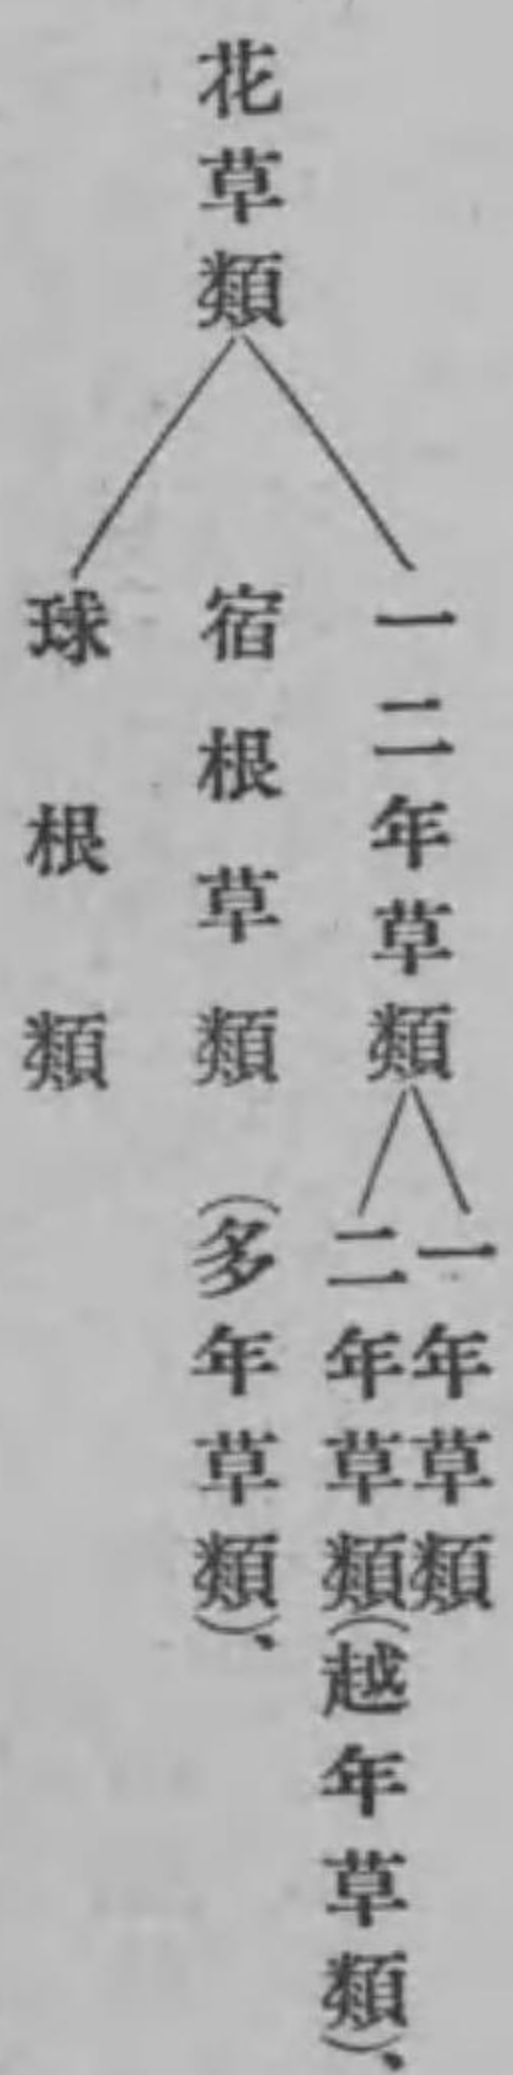 花草類
一二年草類
一年草類
二年草類(越年草類)、
宿根草類(多年草類)、
球根類